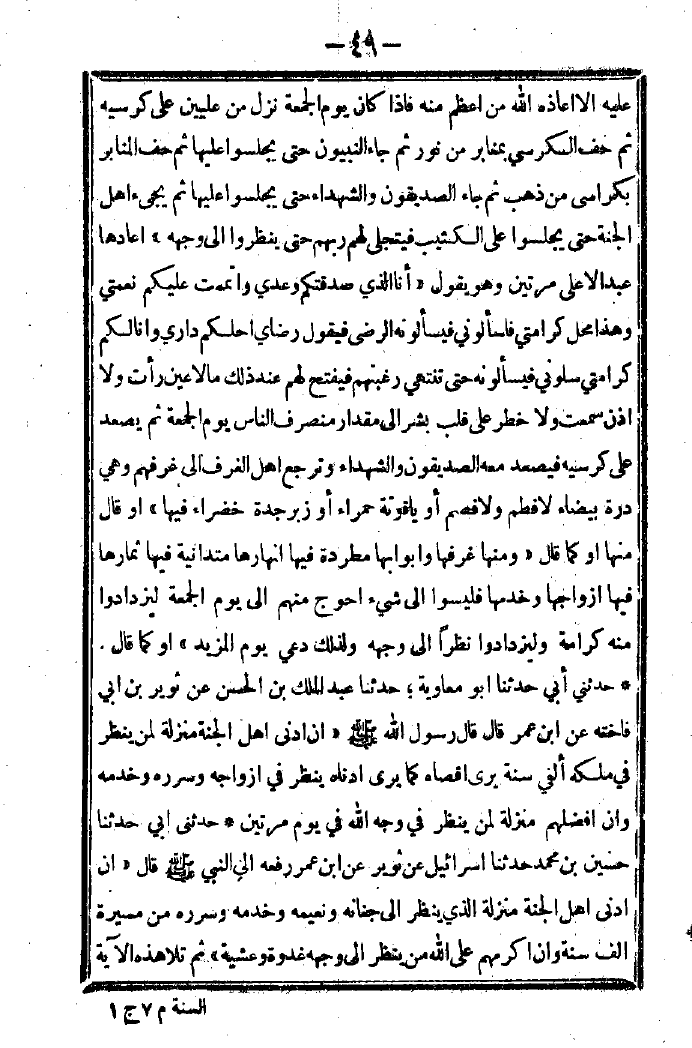 — ٤٩ —
عليه الا اعاذه الله من اعظم منه فاذا كان يوم الجمعة نزل من عليين على كرسيه
ثم حف الكرسي بمنابر من نور ثم جاء النبيون حتى يجلسوا عليها ثم حف المنابر
بكراسى من ذهب ثم جاء الصديقون والشهداء حتى يجلسوا عليها ثم يجيء اهل
الجنة حتى يجلسوا على الكثيب فيتجلى لهم ربهم حتى ينظروا الى وجهه » اعادها
عبد الاعلى مرتين وهو يقول « أنا الذي صدقتكم وعدي واتممت عليكم نعمتي
وهذا محل كرامتي فاسألوني فيسألونه الرضى فيقول رضاي احلكم داري وانالكم
كرامتي سلوني فيسألونه حتى تنتهي رغبتهم فيفتح لهم عند ذلك مالا عين رأت ولا
اذن سمعت ولا خطر على قلب بشر الى مقدار منصرف الناس يوم الجمعة ثم يصعد
على كرسيه فيصعد معه الصديقون والشهداء وترجع اهل الغرف الى غرفهم وهي
درة بيضاء لا فطم ولا فصم أو ياقوتة حمراء أو زبرجدة خضراء فيها » او قال
منها او كما قال « ومنها غرفها وابوابها مطردة فيها انهارها متدانية فيها ثمارها
فيها ازواجها وخدمها فليسوا الى شيء احوج منهم الى يوم الجمعة ليزدادوا
منه كرامة وليزدادوا نظراً الى وجهه ولذلك دعي يوم المزيد » او كما قال .
* حدثني أبي حدثنا ابو معاوية ؛ حدثنا عبد الملك بن الحسن عن ثوير بن ابي
فاخته عن ابن عمر قال قال رسول الله ﷺ « ان ادنى اهل الجنة منزلة لمن ينظر
في ملكه ألفي سنة يرى اقصاه كما يرى ادناه ينظر في ازواجه وسرره وخدمه
وان افضلهم منزلة لمن ينظر في وجه الله في يوم مرتين * حدثنى ابي حدثنا
حسين بن محمد حدثنا اسرائيل عن ثوير عن ابن عمر رفعه الى النبي ﷺ قال « ان
ادنى اهل الجنة منزلة الذي ينظر الى جنانه ونعيمه وخدمه وسرره من مسيرة
الف سنة وان اكرمهم على الله من ينظر الى وجهه غدوة وعشية » ثم تلا هذه الآية
السنة م ٧ ج ١